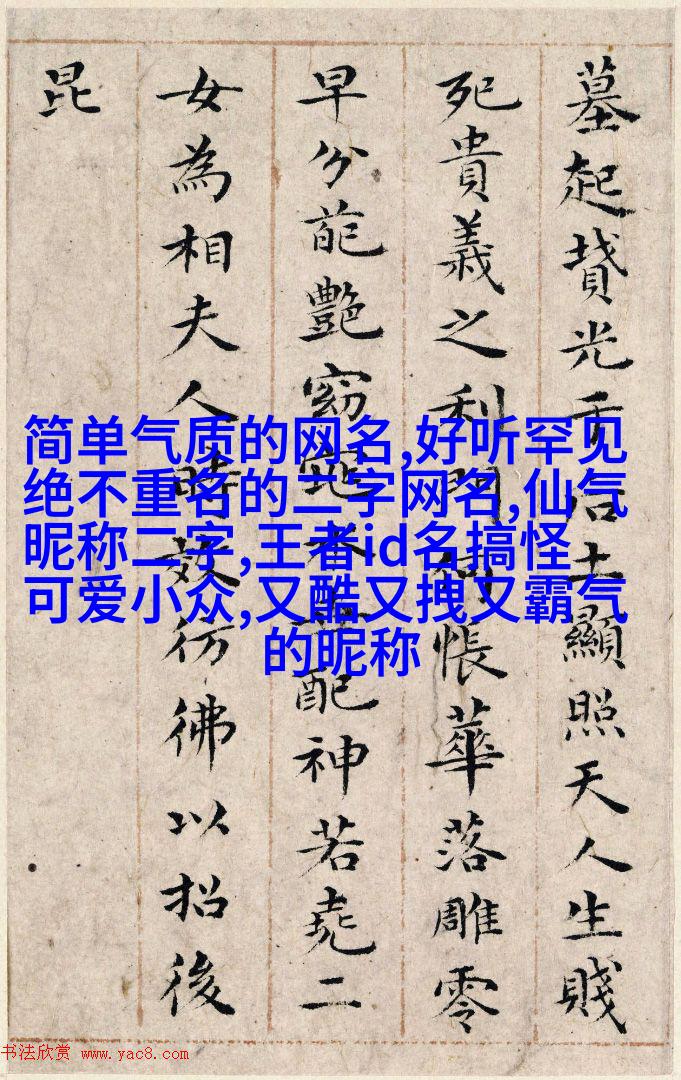 墓起墳光于后土顯照天人生賤
死貴義之利門何悵華落雕零
早分葩艷窈窕永世配神若堯二
女為相夫人時效彷彿以招後
昆
简单气质的网名,好听罕见
绝不重名的二字网名,仙气
昵称二字,王者id名搞怪
可爱小众,又酷又拽又霸气
的昵称
书法欣赏 www.yac8.com